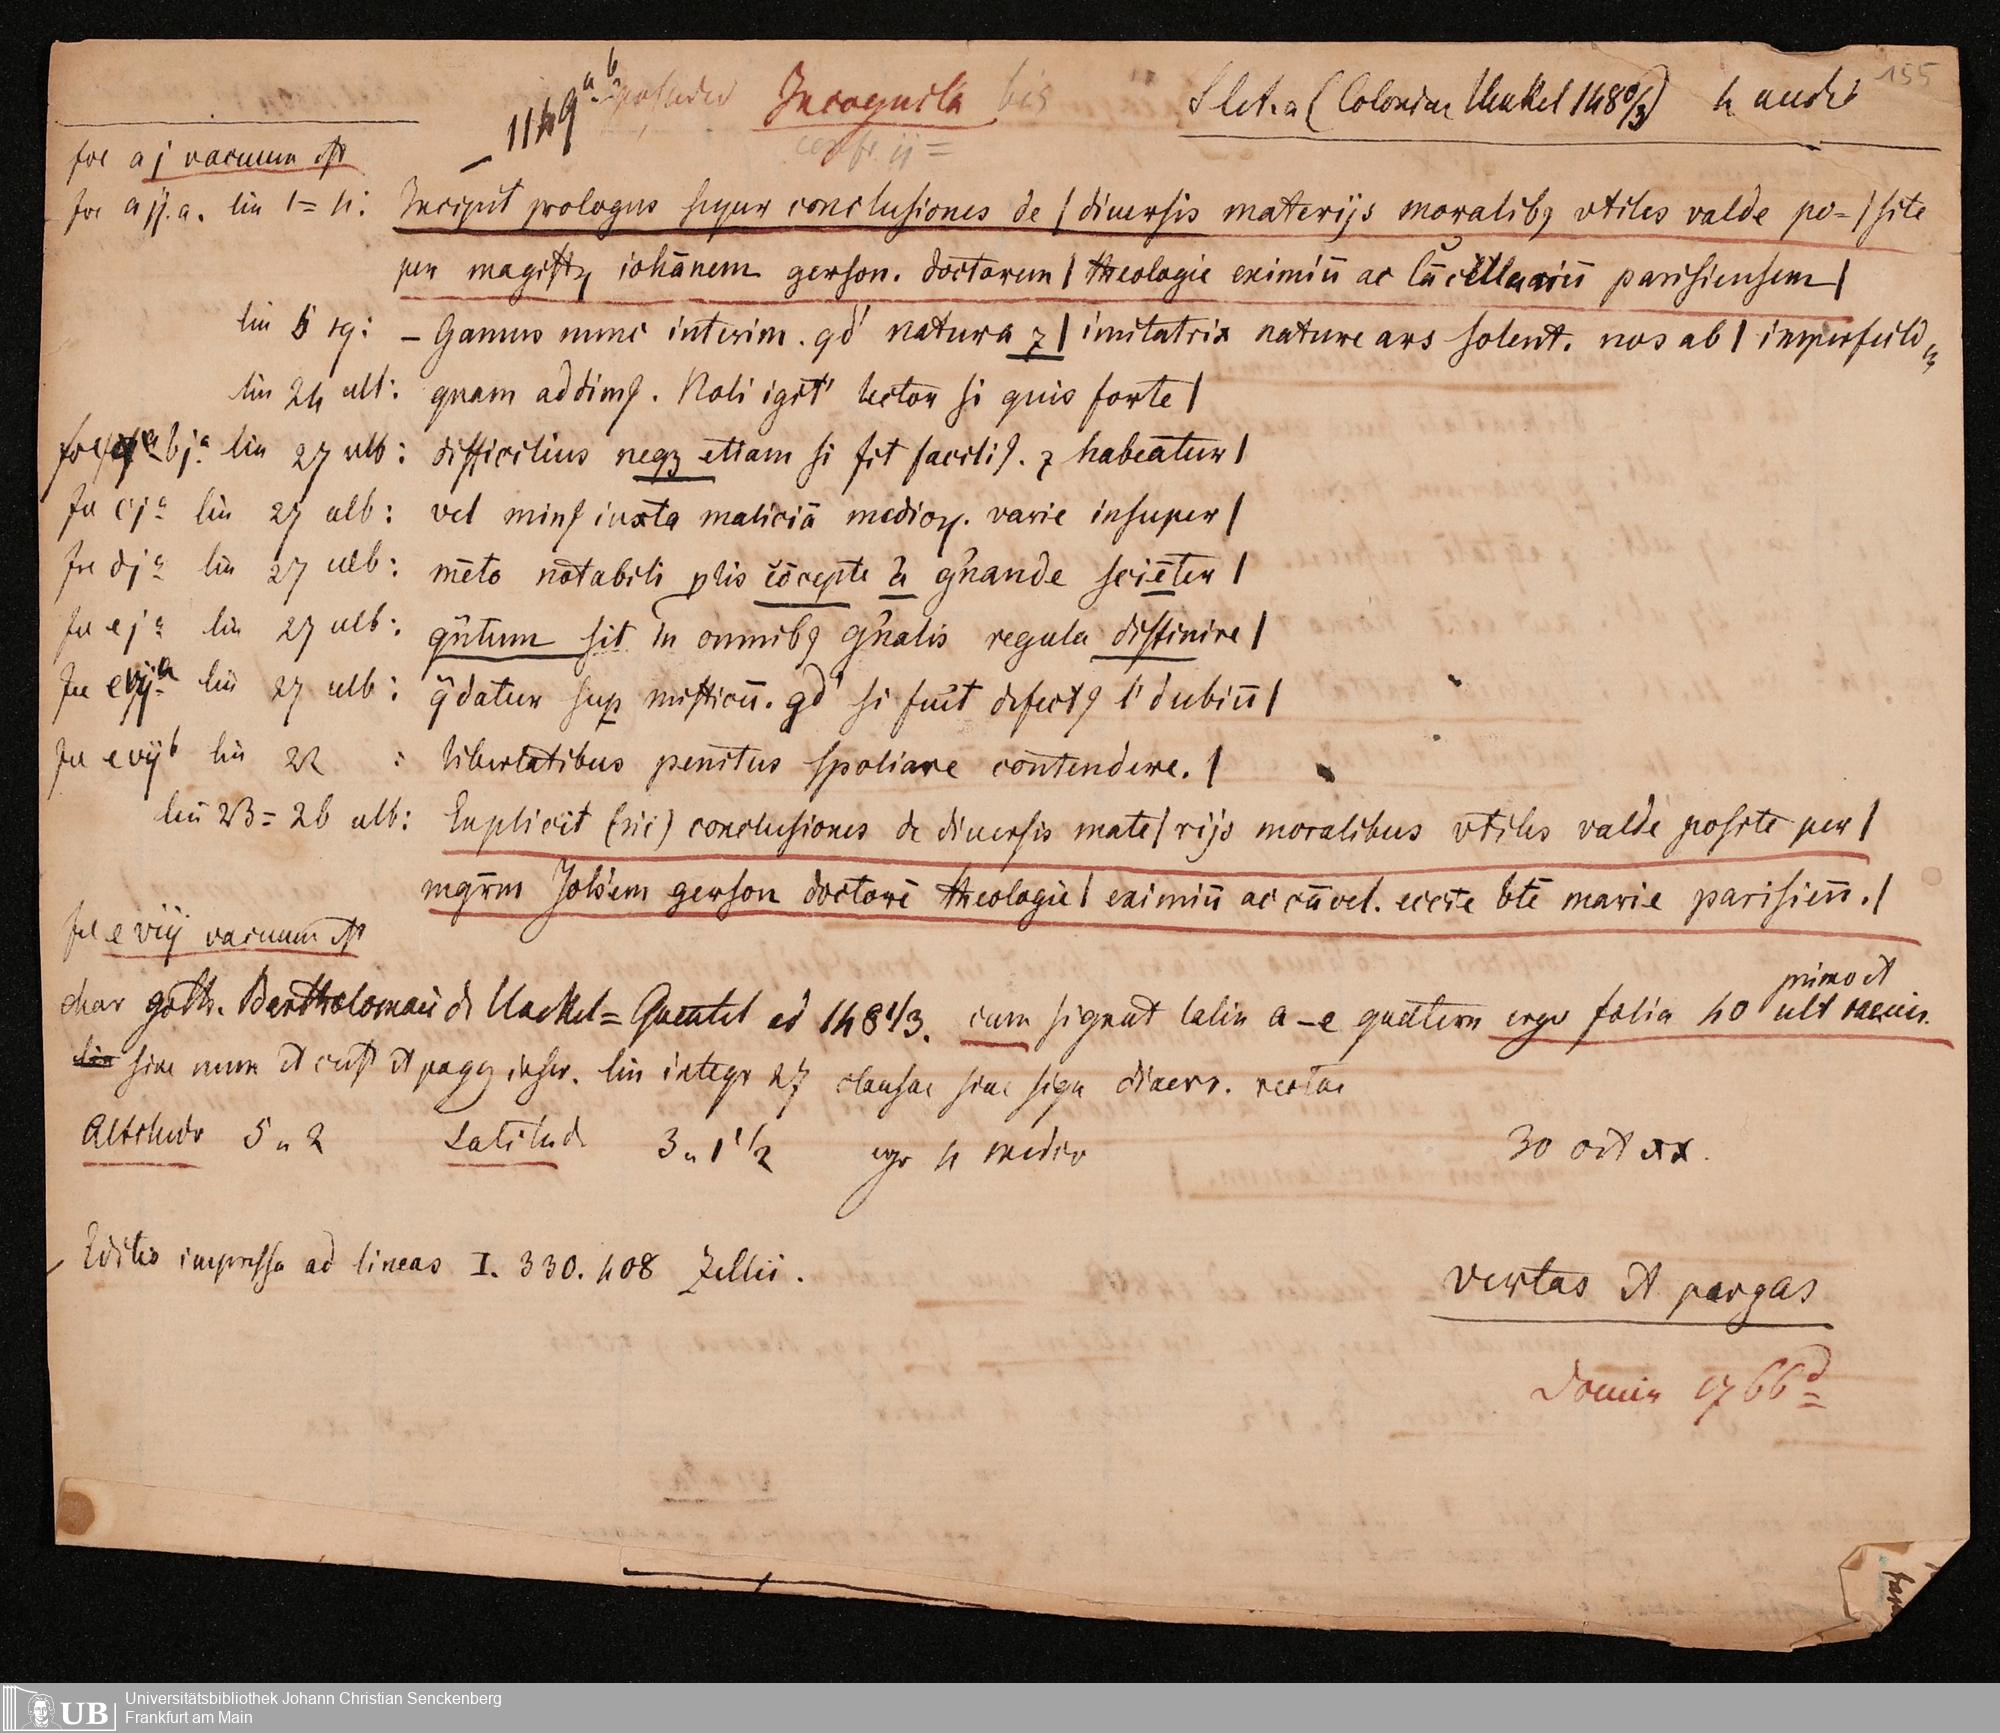 1149 a b Incognita bis S l et a (Coloniae Unkel 148 /3) 4 155
fol a j vacuum est
fol a ij.a. lin 1=4: Incipit prologus super conclusiones de | diuersis materijs moralibꝫ vtiles valde po=| site
per magistꝝ iohānem gerson. doctorem | theologie eximiū ac Cācellariū parisiensem |
lin 5 sq: – Gamus nunc interim . qd' natura ⁊ | imitatrix nature ars solent. nos ab | imperfect
lin 24 ult: quam addimꝰ. Noli igit' lector si quis forte |
bj.a lin 27 ult: difficilius neqꝫ etiam si sit faciliꝰ. ⁊ habeātur |
fol cj a lin 27 ult: vel minꝰ iuxta maliciā medioꝝ. varie insuper |
fol dj a lin 27 ult: mēto nōtabili plis cōcepte gn̄ande sciēter |
fol ej a lin 27 ult: qn̄tum sit in omnibꝫ gn̄alis regula diffinire |
fol evij a lin 27 ult: q̄datur sup misticū. qd' si fuīt defectꝰ l' dubiū |
fol evij b lin 22 : libertatibus penitus spoliare contendere. |
lin 23=26 ult: Explicit (sic) conclusiones de diuersis mate| rijs moralibus vtiles valde posite per |
mgr̄m Joh̄em gerson doctorē theologie | eximiū ac cācel. eccīe btē marie parisieñ. |
fol e viij vacuum est
char goth. Bartholomaei de Unckel= Quentel ed 148 1/3. cum signat a–e quatern ergo folia 40 primo et ult vacuis.
sine num et cust et pagg inscr. lin integr 27 clausae sine sign divers. rectae
Altitudo 5 " 2 Latitudo 3 " 1 1/2 ergo 4 medio 30 oct xx.
Editio impressa ad lineas I. 330. 408 Zellii.
vertas et pergas
1766 d
Universitätsbibliothek Johann Christian Senckenberg
Frankfurt am Main
UB